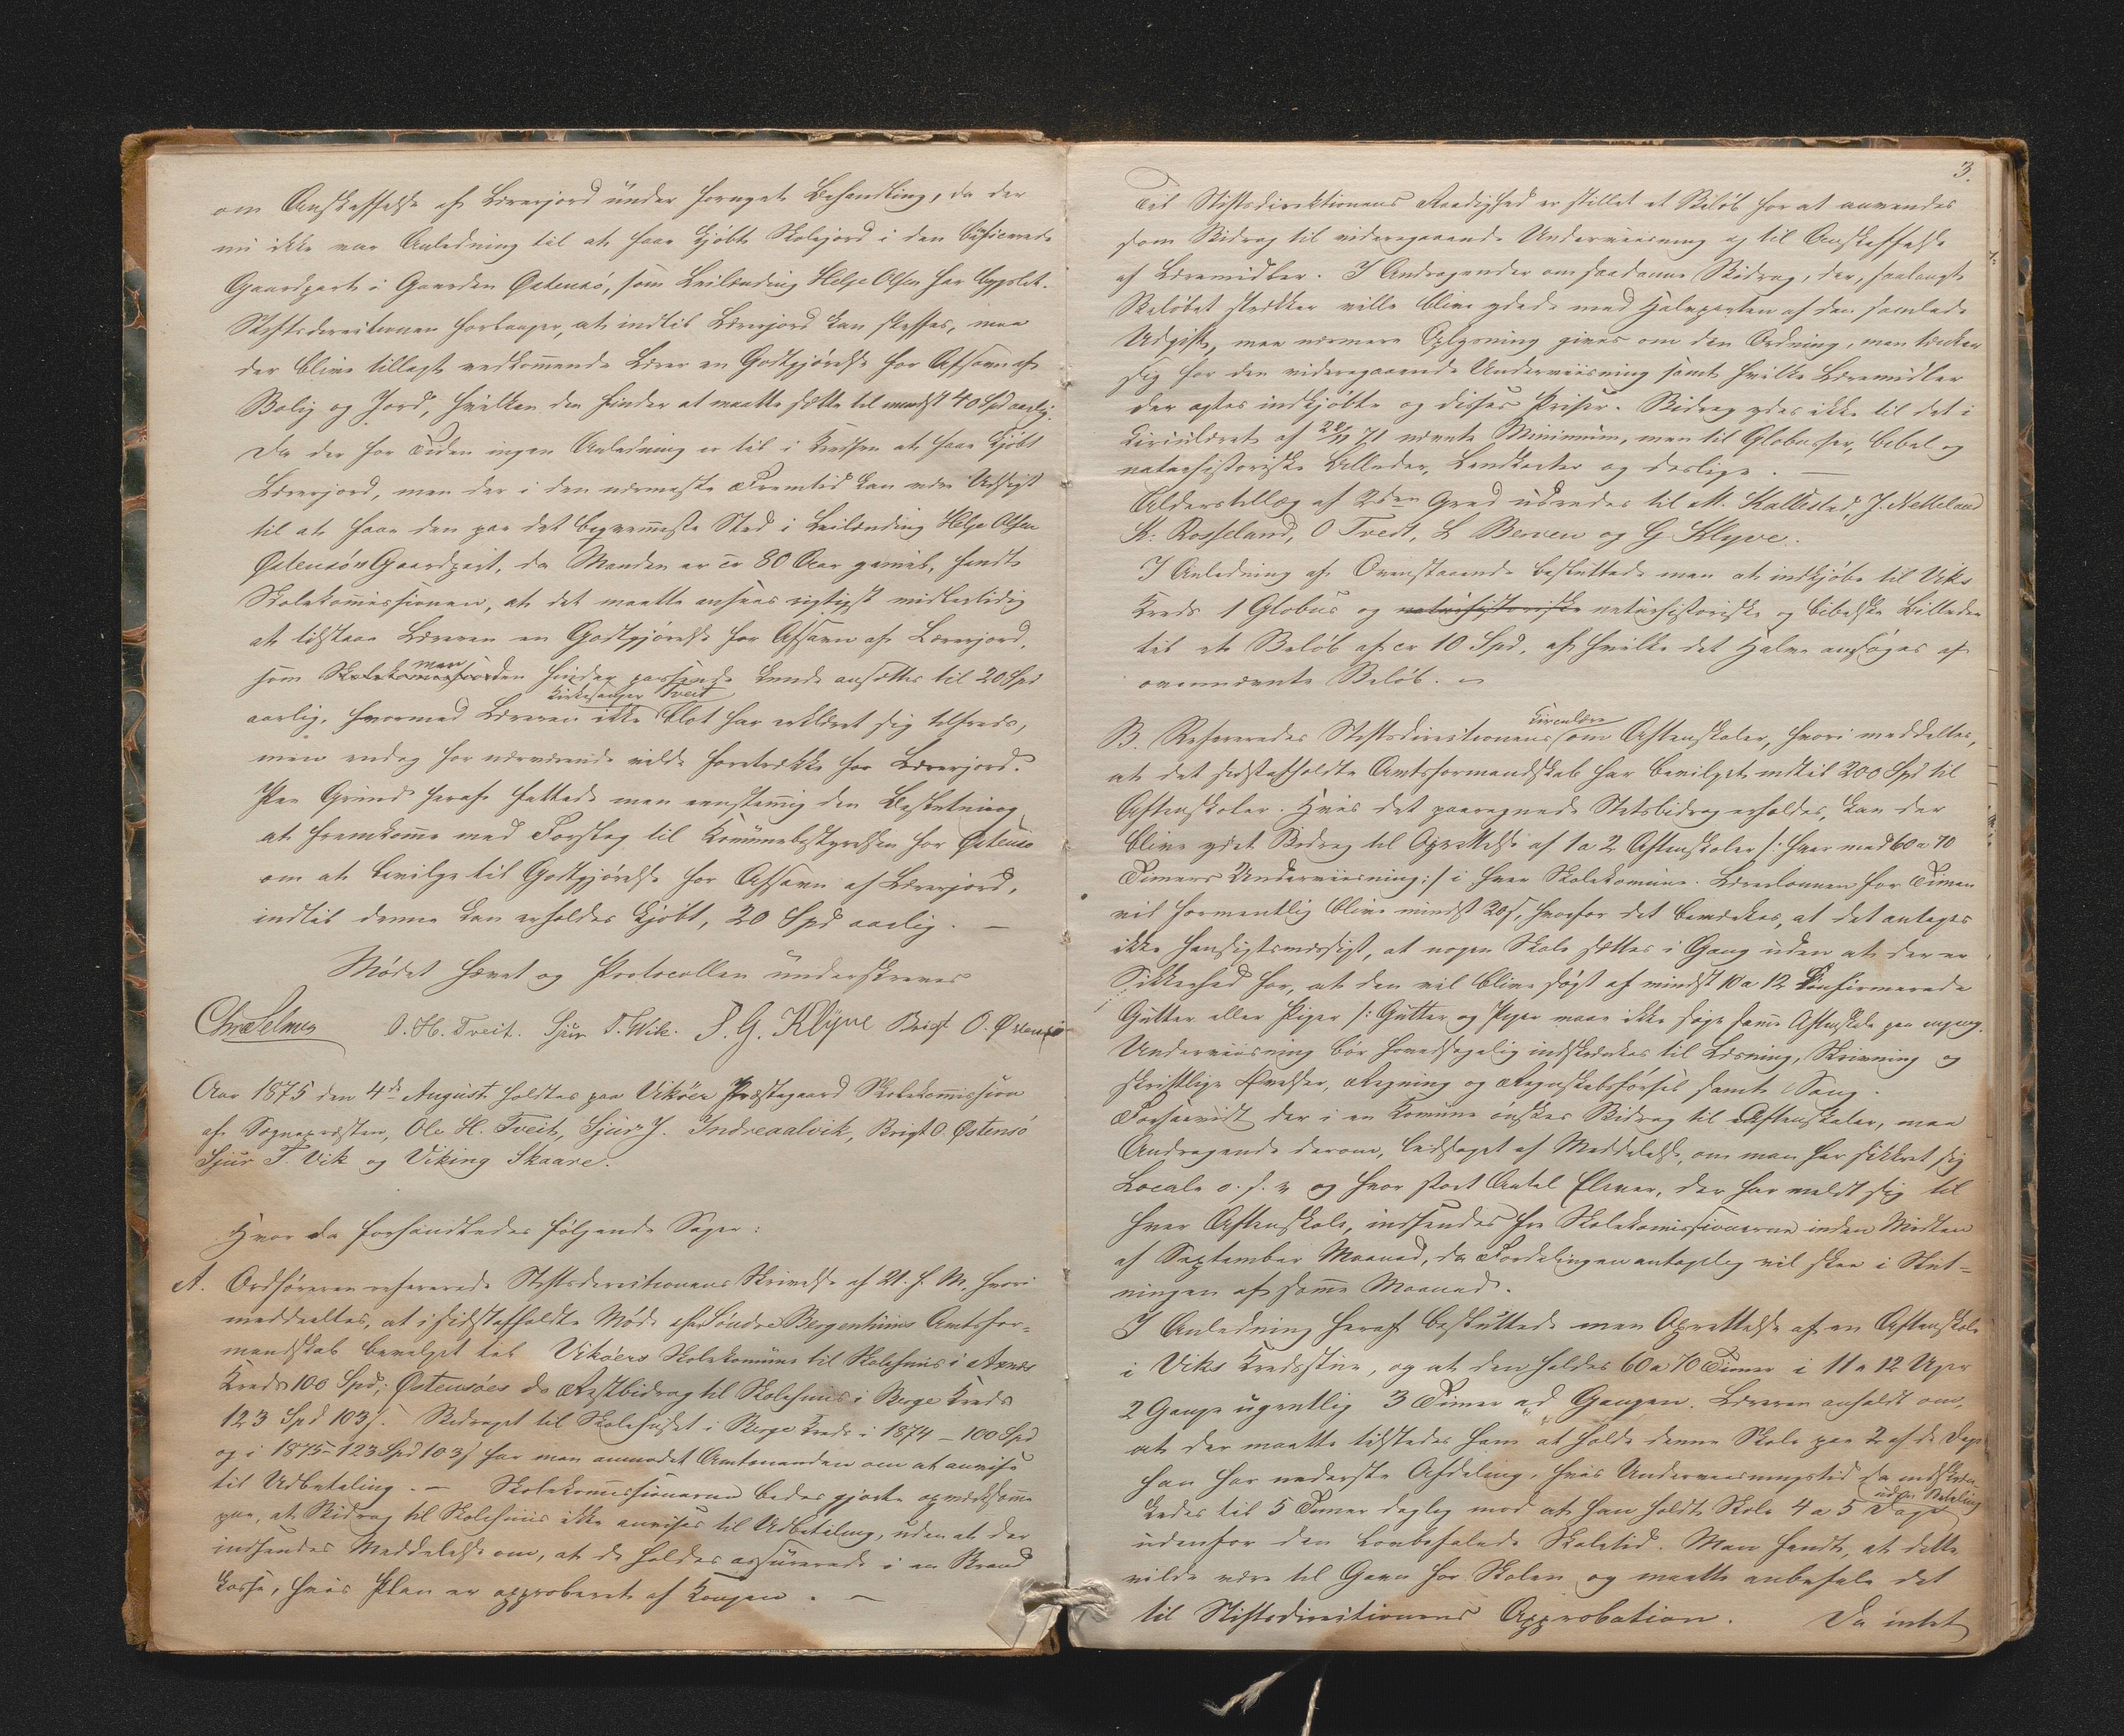 om Anskaffelse af Lærerjord under fornyet Behandling, da der
nu ikke var Anledning til at faae kjøbt Skolejord i den beneficerede
Gaardpart i Gaarden Østensø, som Leilænding Helje Olsen har bygslet.
Stiftsdirectionen forlanger, at indtil Lærerjord kan skaffes, maa
der blive tillagt vedkommende Lærer en Godtgjørelse for Afsavn af
Bolig og Jord, hvilken den finder at maatte sætte til mindst 40 Spd aarlig.
Da der for Tiden ingen Anledning er til i Kredsen at faae kjøbt
Lærerjord, men der i den nærmeste Fremtid kan være Udsigt
til at faae den paa det beqvemmeste Sted i Leilænding Helje Olsen
Østensøs Gaardpart, da Manden er cr 80 Aar gammel, fandt
Skolekommissionen, at det maatte ansees rigtigst midlertidig
at tilstaae Læreren en Godtgjørelse for Afsavn af Lærerjord,
man
som Skolekommissionen finder passende kunde ansættes til 20 Spd
Kirkesanger Tveit
aarlig, hvormed Læreren ikke blot har erklæret sig tilfreds,
men endog for nærværende vilde foretrække for Lærerjord.
Paa Grund heraf fattede man eenstemmig den Beslutning
at fremkomme med Forslag til Kommunebestyrelsen for Østensø
om at bevilge til Godtgjørelse for Afsavn af Lærerjord,
indtil denne kan erholdes kjøbt, 20 Spd aarlig. —
Mødet hævet og Protocollen underskreves
Chr. Selmer O. H. Tveit. Sjur T. Wik. S. G. Klyve Brigt O. Østensø
Aar 1875 den 4de August holdtes paa Vikøer Præstegaard Skolekommission
af Sognepræsten, Ole H. Tveit, Sjur J. Indreaalvik, Brigt O. Østensø
Sjur T. Vik og Viking Skaare.
Hvor da forhandledes følgende Sager:
A. Ordføreren refererede Stiftsdirectionens Skrivelse af 21. f. M., hvori
meddeeltes, at i sidstafholdte Møde har Søndre Bergenhuus Amtsfor-
mandskab bevilget til Vikøers Skolekommune til Skolehuus i Axnes
Kreds 100 Spd; Østensøes do Restbidrag til Skolehuus i Berge Kreds
123 Spd 103 s. Bidraget til Skolehuset i Berge Kreds i 1874 – 100 Spd
og i 1875 – 123 Spd 103 s har man anmodet Amtmanden om at anvise
til Udbetaling. — Skolekommissionerne bedes gjorte opmærksomme
paa, at Bidrag til Skolehuus ikke anvises til Udbetaling, uden at der
indsendes Meddelelse om, at de holdes assurerede i en Brand
kasse, hvis Plan er approberet af Kongen. —
3.
Til Stiftsdirektionens Raadighed er stillet et Beløb for at anvendes
som Bidrag til videregaaende Underviisning og til Anskaffelse
af Læremidler. I Andragender om saadanne Bidrag, der, saalangt
Beløbet strækker ville blive ydede med Halvparten af den samlede
Udgift, maa nærmere Oplysning gives om den Ordning, man tænker
sig for den videregaaende Underviisning samt hvilke Læremidler
der agtes indkjøbte og disses Priser. Bidrag ydes ikke til det i
Circulæret af 20/11 71 nævnte Minimum, men til Globusser, bibel og
naturhistoriske Billeder, Landkarter og deslige. —
Alderstillæg af 2den Grad udredes til M. Kallestad, J. Mekeland
K. Rosseland, O Tveit, L Berven og G Klyve.
I Anledning af Ovenstaaende besluttede man at indkjøbe til Viks
Kreds 1 Globus og naturhistoriske naturhistoriske og bibelske Billeder
til et Beløb af cr 10 Spd, af hvilke det Halve ansøges af
ovennævnte Beløb. —
Circulære
B. Refereredes Stiftsdirectionens om Aftenskoler, hvori meddeltes,
at det sidstafholdte Amtsformandskab har bevilget indtil 200 Spd til
Aftenskoler. Hvis det paaregnede Statsbidrag erholdes, kan der
blive ydet Bidrag til Oprettelse af 1 a 2 Aftenskoler /: hver med 60 a 70
Timers Underviisning :/ i hver Skolekommune. Lærerlønnen for Timen
vil formentlig blive mindst 20 s, hvorfor det bemærkes, at det antages
ikke hensigtsmæssigt, at nogen Skole sættes i Gang uden at der er
Sikkerhed for, at den vil blive søgt af mindst 10 a 12 konfirmerede
Gutter eller Piger /: Gutter og Piger maae ikke søge samme Aftenskole paa engang.
Underviisning bør hovedsagelig indskrænkes til Læsning, Skrivning og
skriftlige Øvelser, Regning og Regnskabsførsel samt Sang.
Forsaavidt der i en Kommune ønskes Bidrag til Aftenskoler, maa
Andragende derom, ledsaget af Meddelelse, om man har sikkret sig
Locale o. s. v og hvor stort Antal Elever, der har meldt sig til
hver Aftenskole, indsendes fra Skolekommissionerne inden Midten
af September Maaned, da Fordelingen antagelig vil skee i Slut-
ningen af samme Maaned.
I Anledning heraf besluttede man Oprettelse af en Aftenskole
i Viks Kredsstue, og at den holdes 60 a 70 Timer i 11 a 12 Uger
2 Gange ugentlig 3 Timer ad Gangen. Læreren anholdt om,
at der maatte tilstedes ham at holde denne Skole paa 2 af de Dage
han har nederste Afdeling, hvis Underviisningstid da indskræn
uden Betaling
kedes til 5 Timer daglig mod at han holdt Skole 4 a 5 Dage
udenfor den lovbefalede Skoletid. Man fandt, at dette
vilde være til Gavn for Skolen og maatte anbefale det
til Stiftsdirectionens Approbation. Da intet